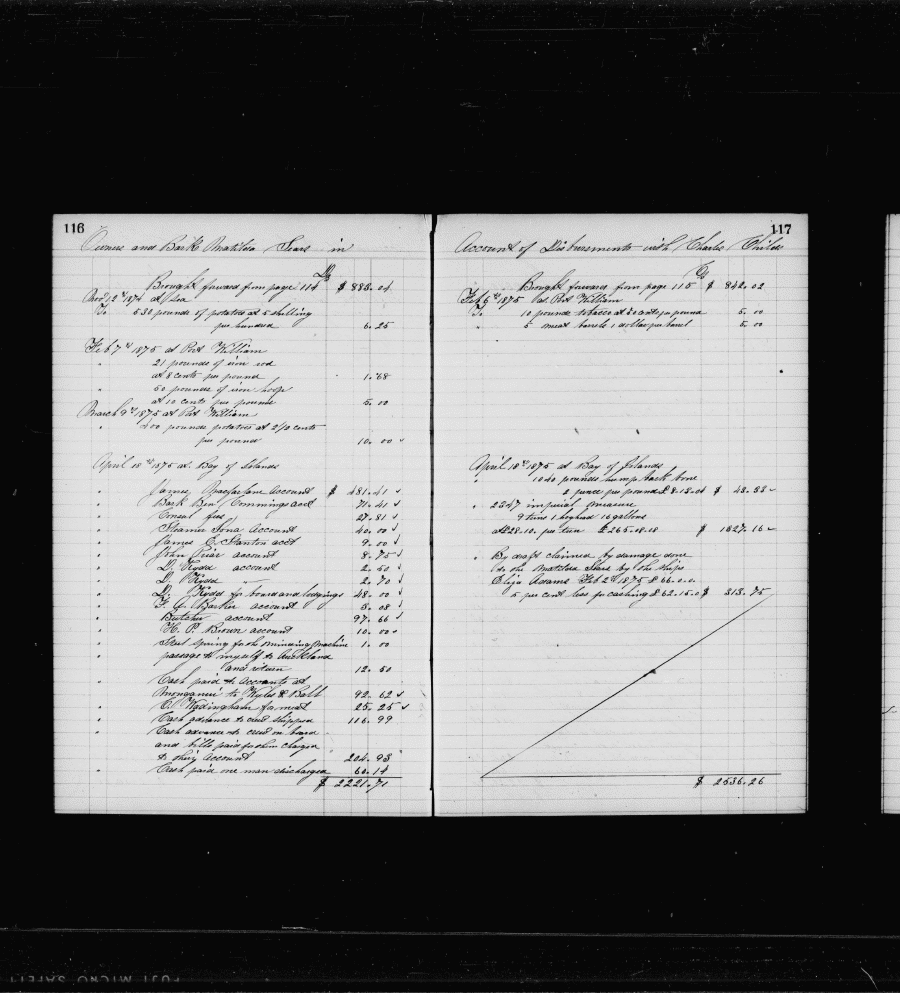 116
Owners and Bark Matilda Sears in
Dr
Brought forward from page 114 $ 885.04
Novr 12th 1874 at Sea
To 530 pounds of potatoes at 5 shilling
per hundred 6.25
Feb 7th 1875 at Port William
" 21 pounds of iron rod
at 8 cents per pound 1.68
" 50 pounds of iron hoop
at 10 cents per pound 5.00
March 9th 1875 at Port William
" 400 pounds potatoes at 2/10 cents
per pound 10.00
April 18th 1875 at Bay of Islands
" James Macfarlane Account $ 481.41
" Bark Ben Cummings acct 71.41
" Consul fees 27.81
" Steamer Iona Account 40.00
" James C Stanton acct 9.00
" John Grear account 8.75
" D. Kydd account 2.50
" D. Kydd — 2.70
" D. Kydd for board and lodgings 48.00
" F. G. Barker account 5.08
" Butcher account 97.66
" H. P. Brown account 10.00
" Steel Spring for the mincing machine 1.00
" passage to myself to Auckland
and return 12.50
" Cash paid to Accounts at
Monganui to Wyles & Ball 92.62
" C. Wadingham for meat 25.25
" Cash advance to crew shipped 116.99
" Cash advance to crew on board
and bills paid for them charged
to their Account 204.93
" Cash paid one man discharged 60.14
$ 2221.71
117
Account of Disbursements with Charles Childs
Cr
Brought forward from page 115 $ 842.02
Feb 5th 1875 at Port William
To 10 pounds tobacco at 50 cents per pound 5.00
" 5 meat barrels 1 dollar per barrel 5.00
April 18th 1875 at Bay of Islands
" 1040 pounds hump back bone
2 pence per pound £ 8.13.04 $ 43.33
" 2347 imperial measure
9 tuns 1 hogshead 16 gallons
at £28.10. per tun £ 265.18.18 $ 1327.16
" By draft claimed by damage done
to the Matilda Sears by the ships
Eliza Adams Feb 2d 1875 £ 66.0.0
5 per cent less for cashing £ 62.15.0 $ 313.75
$ 2536.26
FUJI MICRO SAFETY